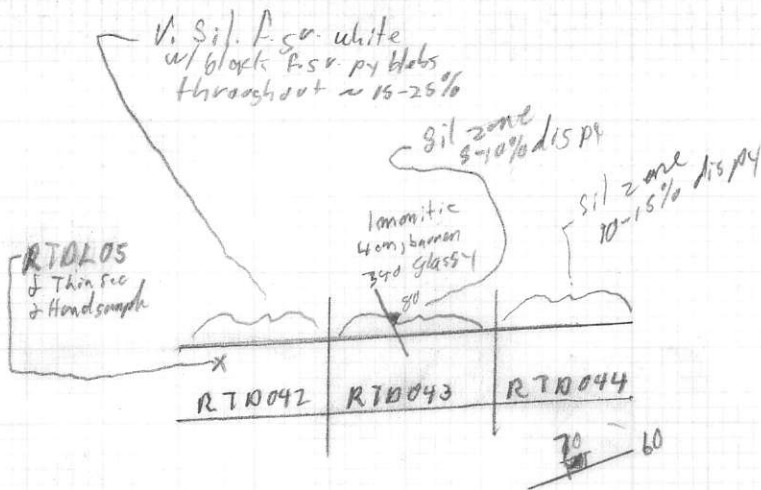 V. Sil. f.gr. white
w/ black f.gr. py blebs
throughout ~ 15-25%
Sil zone
5-10% dis py
Sil zone
10-15% dis py
limonitic
4cm, barren
340 glassy
80
RTDL05
& Thin Sec
& Handsample
RTD042
RTD043
RTD044
70
60